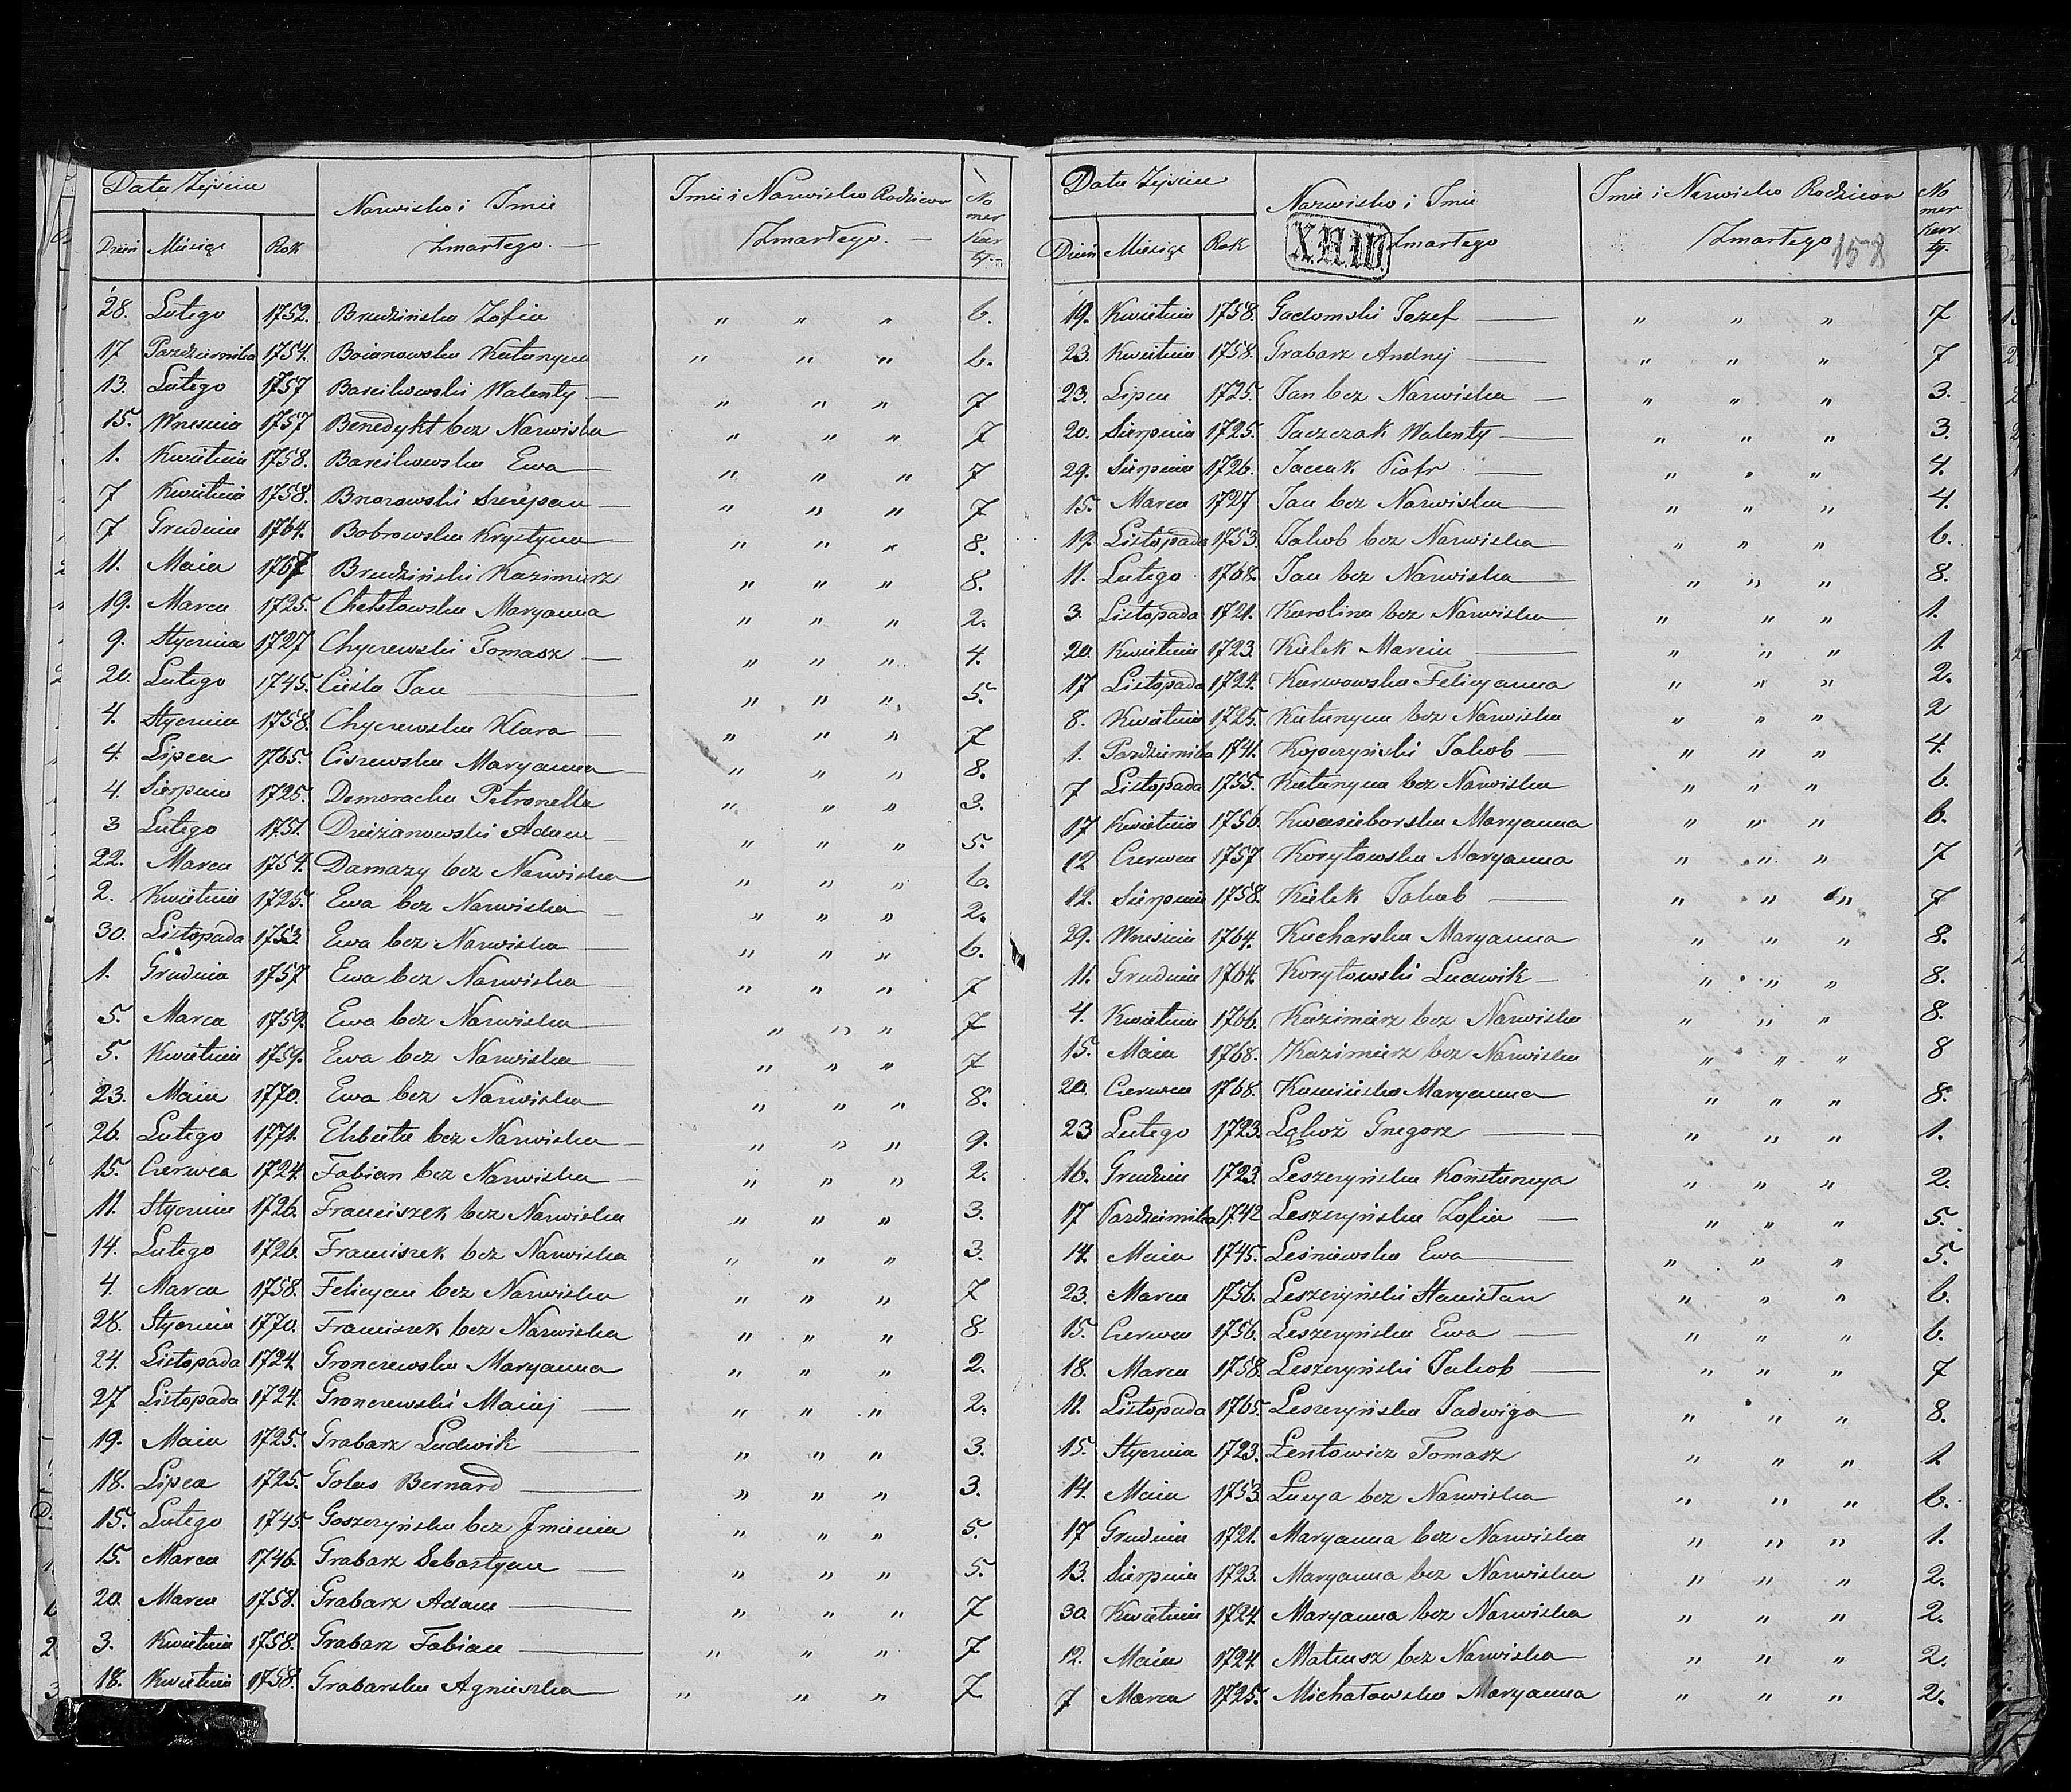 Data Zejścia
Nazwisko i Imie Zmarłego.
Imie i Nazwisko Rodziców Zmarłego.
Nomer Karty
Dzień Miesiąc Rok
28. Lutego 1752. Brudzińska Zofia " " " 6.
17 Pazdziernika 1754. Boianowska Katarzyna " " " 6.
13. Lutego 1757 Barcikowski Walenty " " " 7
15. Wrzesnia 1757 Benedykt bez Nazwiska " " " 7
1. Kwietnia 1758. Barcikowska Ewa " " " 7
7 Kwietnia 1758. Brzozowski Szczepan " " " 7
7 Grudnia 1764. Bobrowska Krystyna " " " 8.
11. Maia 1767 Brudziński Kazimierz " " " 8.
19. Marca 1725. Chełstowska Maryanna " " " 2.
9. Stycznia 1727 Chyczewski Tomasz " " " 4.
20. Lutego 1745. Cieśla Jan " " " 5.
4. Stycznia 1758. Chyczewska Klara " " " 7
4. Lipca 1765. Ciszewska Maryanna " " " 8.
4. Sierpnia 1725. Domoracka Petronella " " " 3.
3 Lutego 1751. Dzierzanowski Adam " " " 5.
22. Marca 1754. Damazy bez Nazwiska " " " 6.
2. Kwietnia 1725. Ewa bez Nazwiska " " " 2.
30. Listopada 1753. Ewa bez Nazwiska " " " 6.
1. Grudnia 1757 Ewa bez Nazwiska " " " 7
5. Marca 1759. Ewa bez Nazwiska " " " 7
5. Kwietnia 1759. Ewa bez Nazwiska " " " 7
23. Maia 1770. Ewa bez Nazwiska " " " 8.
26. Lutego 1771. Elzbieta bez Nazwiska " " " 9.
15. Czerwca 1724. Fabian bez Nazwiska " " " 2.
11. Stycznia 1726. Franciszek bez Nazwiska " " " 3.
14. Lutego 1726. Franciszek bez Nazwiska " " " 3.
4. Marca 1758. Felicyan bez Nazwiska " " " 7
28. Stycznia 1770. Franciszek bez Nazwiska " " " 8.
24. Listopada 1724. Gronczewska Maryanna " " " 2.
27 Listopada 1724. Gronczewski Maciej " " " 2.
19. Maia 1725. Grabarz Ludwik " " " 3.
18. Lipca 1725. Golas Bernard " " " 3.
15. Lutego 1745. Goszczyńska bez Jmienia " " " 5.
15. Marca 1746. Grabarz Sebastyan " " " 5.
20. Marca 1758. Grabarz Adam " " " 7
3. Kwietnia 1758. Grabarz Fabian " " " 7
18. Kwietnia 1758. Grabarska Agnieszka " " " 7
Data Zejścia
Nazwisko i Imie Zmarłego
X.H.IU.
Imie i Nazwisko Rodziców Zmarłego
158
Nomer Karty.
Dzień Miesiąc Rok
19. Kwietnia 1758. Gadomski Jozef " " " 7
23. Kwietnia 1758. Grabarz Andrzej " " " 7
23. Lipca 1725. Jan bez Nazwiska " " " 3.
20. Sierpnia 1725. Jaczczak Walenty " " " 3.
29. Sierpnia 1726. Jaczak Piotr " " " 4.
15. Marca 1727 Jan bez Nazwiska " " " 4.
19. Listopada 1753. Jakob bez Nazwiska " " " 6.
11. Lutego 1768. Jan bez Nazwiska " " " 8.
3. Listopada 1721. Karolina bez Nazwiska " " " 1.
20. Kwietnia 1723. Kiełek Marcin " " " 1
17 Listopada 1724. Karwowska Felicyanna " " " 2.
8. Kwietnia 1725. Katarzyna bez Nazwiska " " " 2
1. Pazdziernika 1741. Kopczyński Jakob " " " 4.
7 Listopada 1755. Katarzyna bez Nazwiska " " " 6.
17 Kwietnia 1756. Kwasieborska Maryanna " " " 6.
12 Czerwca 1757 Korytowska Maryanna " " " 7
12. Sierpnia 1758 Kiełek Jakub " " " 7
29. Wrzesnia 1764. Kucharska Maryanna " " " 8.
11. Grudnia 1764. Korytowski Ludwik " " " 8.
4. Kwietnia 1766. Kazimierz bez Nazwiska " " " 8.
15. Maia 1768. Kazimierz bez Nazwiska " " " 8
20. Czerwca 1768. Kamińska Maryanna " " " 8.
23 Lutego 1723. Lękoż Grzegorz " " " 1.
16. Grudnia 1723. Leszczyńska Konstancya " " " 2.
17 Pazdziernika 1742 Leszczyńska Zofia " " " 5.
14. Maia 1745. Leśniewska Ewa " " " 5.
23. Marca 1756. Leszczyński Stanisław " " " 6.
15. Czerwca 1756. Leszczyńska Ewa " " " 6.
18. Marca 1758. Leszczyński Jakob " " " 7
11. Listopada 1765. Leszczyńska Jadwiga " " " 8.
15. Stycznia 1723. Łentowicz Tomasz " " " 1.
14. Maia 1753. Łucya bez Nazwiska " " " 6.
17 Grudnia 1721. Maryanna bez Nazwiska " " " 1.
13. Sierpnia 1723. Maryanna bez Nazwiska " " " 2.
30. Kwietnia 1724. Maryanna bez Nazwiska " " " 2.
12. Maia 1724. Mateusz bez Nazwiska " " " 2.
7 Marca 1725. Michałowska Maryanna " " " 2.